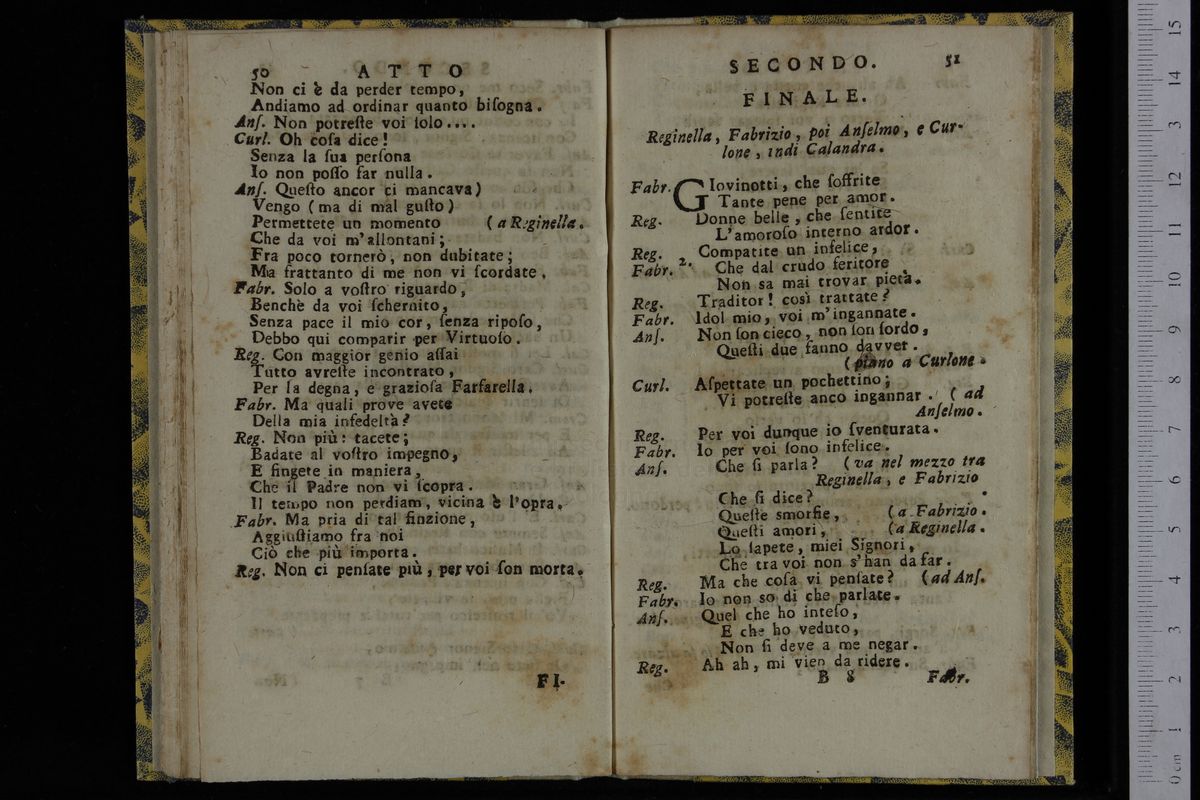 50 ATTO
Non ci è da perder tempo,
Andiamo ad ordinar quanto biſogna.
Anſ. Non potreſte voi ſolo....
Curl. Oh coſa dice!
Senza la ſua perſona
Io non poſſo far nulla.
Anſ. Queſto ancor ci mancava)
Vengo (ma di mal guſto)
Permettete un momento (a Reginella.
Che da voi m'allontani;
Fra poco tornerò, non dubitate;
Ma frattanto di me non vi ſcordate,
Fabr. Solo a voſtro riguardo,
Benchè da voi ſchernito,
Senza pace il mio cor, ſenza ripoſo,
Debbo qui comparir per Virtuoſo.
Reg. Con maggior genio aſſai
Tutto avreſte incontrato,
Per la degna, e grazioſa Farfarella.
Fabr. Ma quali prove avete
Della mia infedeltà?
Reg. Non più: tacete;
Badate al voſtro impegno,
E fingete in maniera,
Che il Padre non vi ſcopra.
Il tempo non perdiam, vicina è l'opra.
Fabr. Ma pria di tal finzione,
Aggiuſtiamo fra noi
Ciò che più importa.
Reg. Non ci penſate più, per voi ſon morta.
FI-
SECONDO. 51
FINALE.
Reginella, Fabrizio, poi Anſelmo, e Cur-
lone, indi Calandra.
Fabr. GIovinotti, che ſoffrite
Tante pene per amor.
Reg. Donne belle, che ſentite
L'amoroſo interno ardor.
Reg. Compatite un infelice,
Fabr. 2. Che dal crudo feritore
Non sa mai trovar pietà.
Reg. Traditor! così trattate?
Fabr. Idol mio, voi m'ingannate.
Anſ. Non ſon cieco, non ſon ſordo,
Queſti due fanno davver.
(piano a Curlone.
Curl. Aſpettate un pochettino;
Vi potreſte anco ingannar. (ad
Anſelmo.
Reg. Per voi dunque io ſventurata.
Fabr. Io per voi ſono infelice.
Anſ. Che ſi parla? (va nel mezzo tra
Reginella, e Fabrizio
Che ſi dice?
Queſte smorfie, (a Fabrizio.
Queſti amori, (a Reginella.
Lo ſapete, miei Signori,
Che tra voi non s'han da far.
Reg. Ma che coſa vi penſate? (ad Anſ.
Fabr. Io non so di che parlate.
Anſ. Quel che ho inteſo,
E che ho veduto,
Non ſi deve a me negar.
Reg. Ah ah, mi vien da ridere.
B 8 Fabr.
0 cm 1 2 3 4 5 6 7 8 9 10 11 12 13 14 15